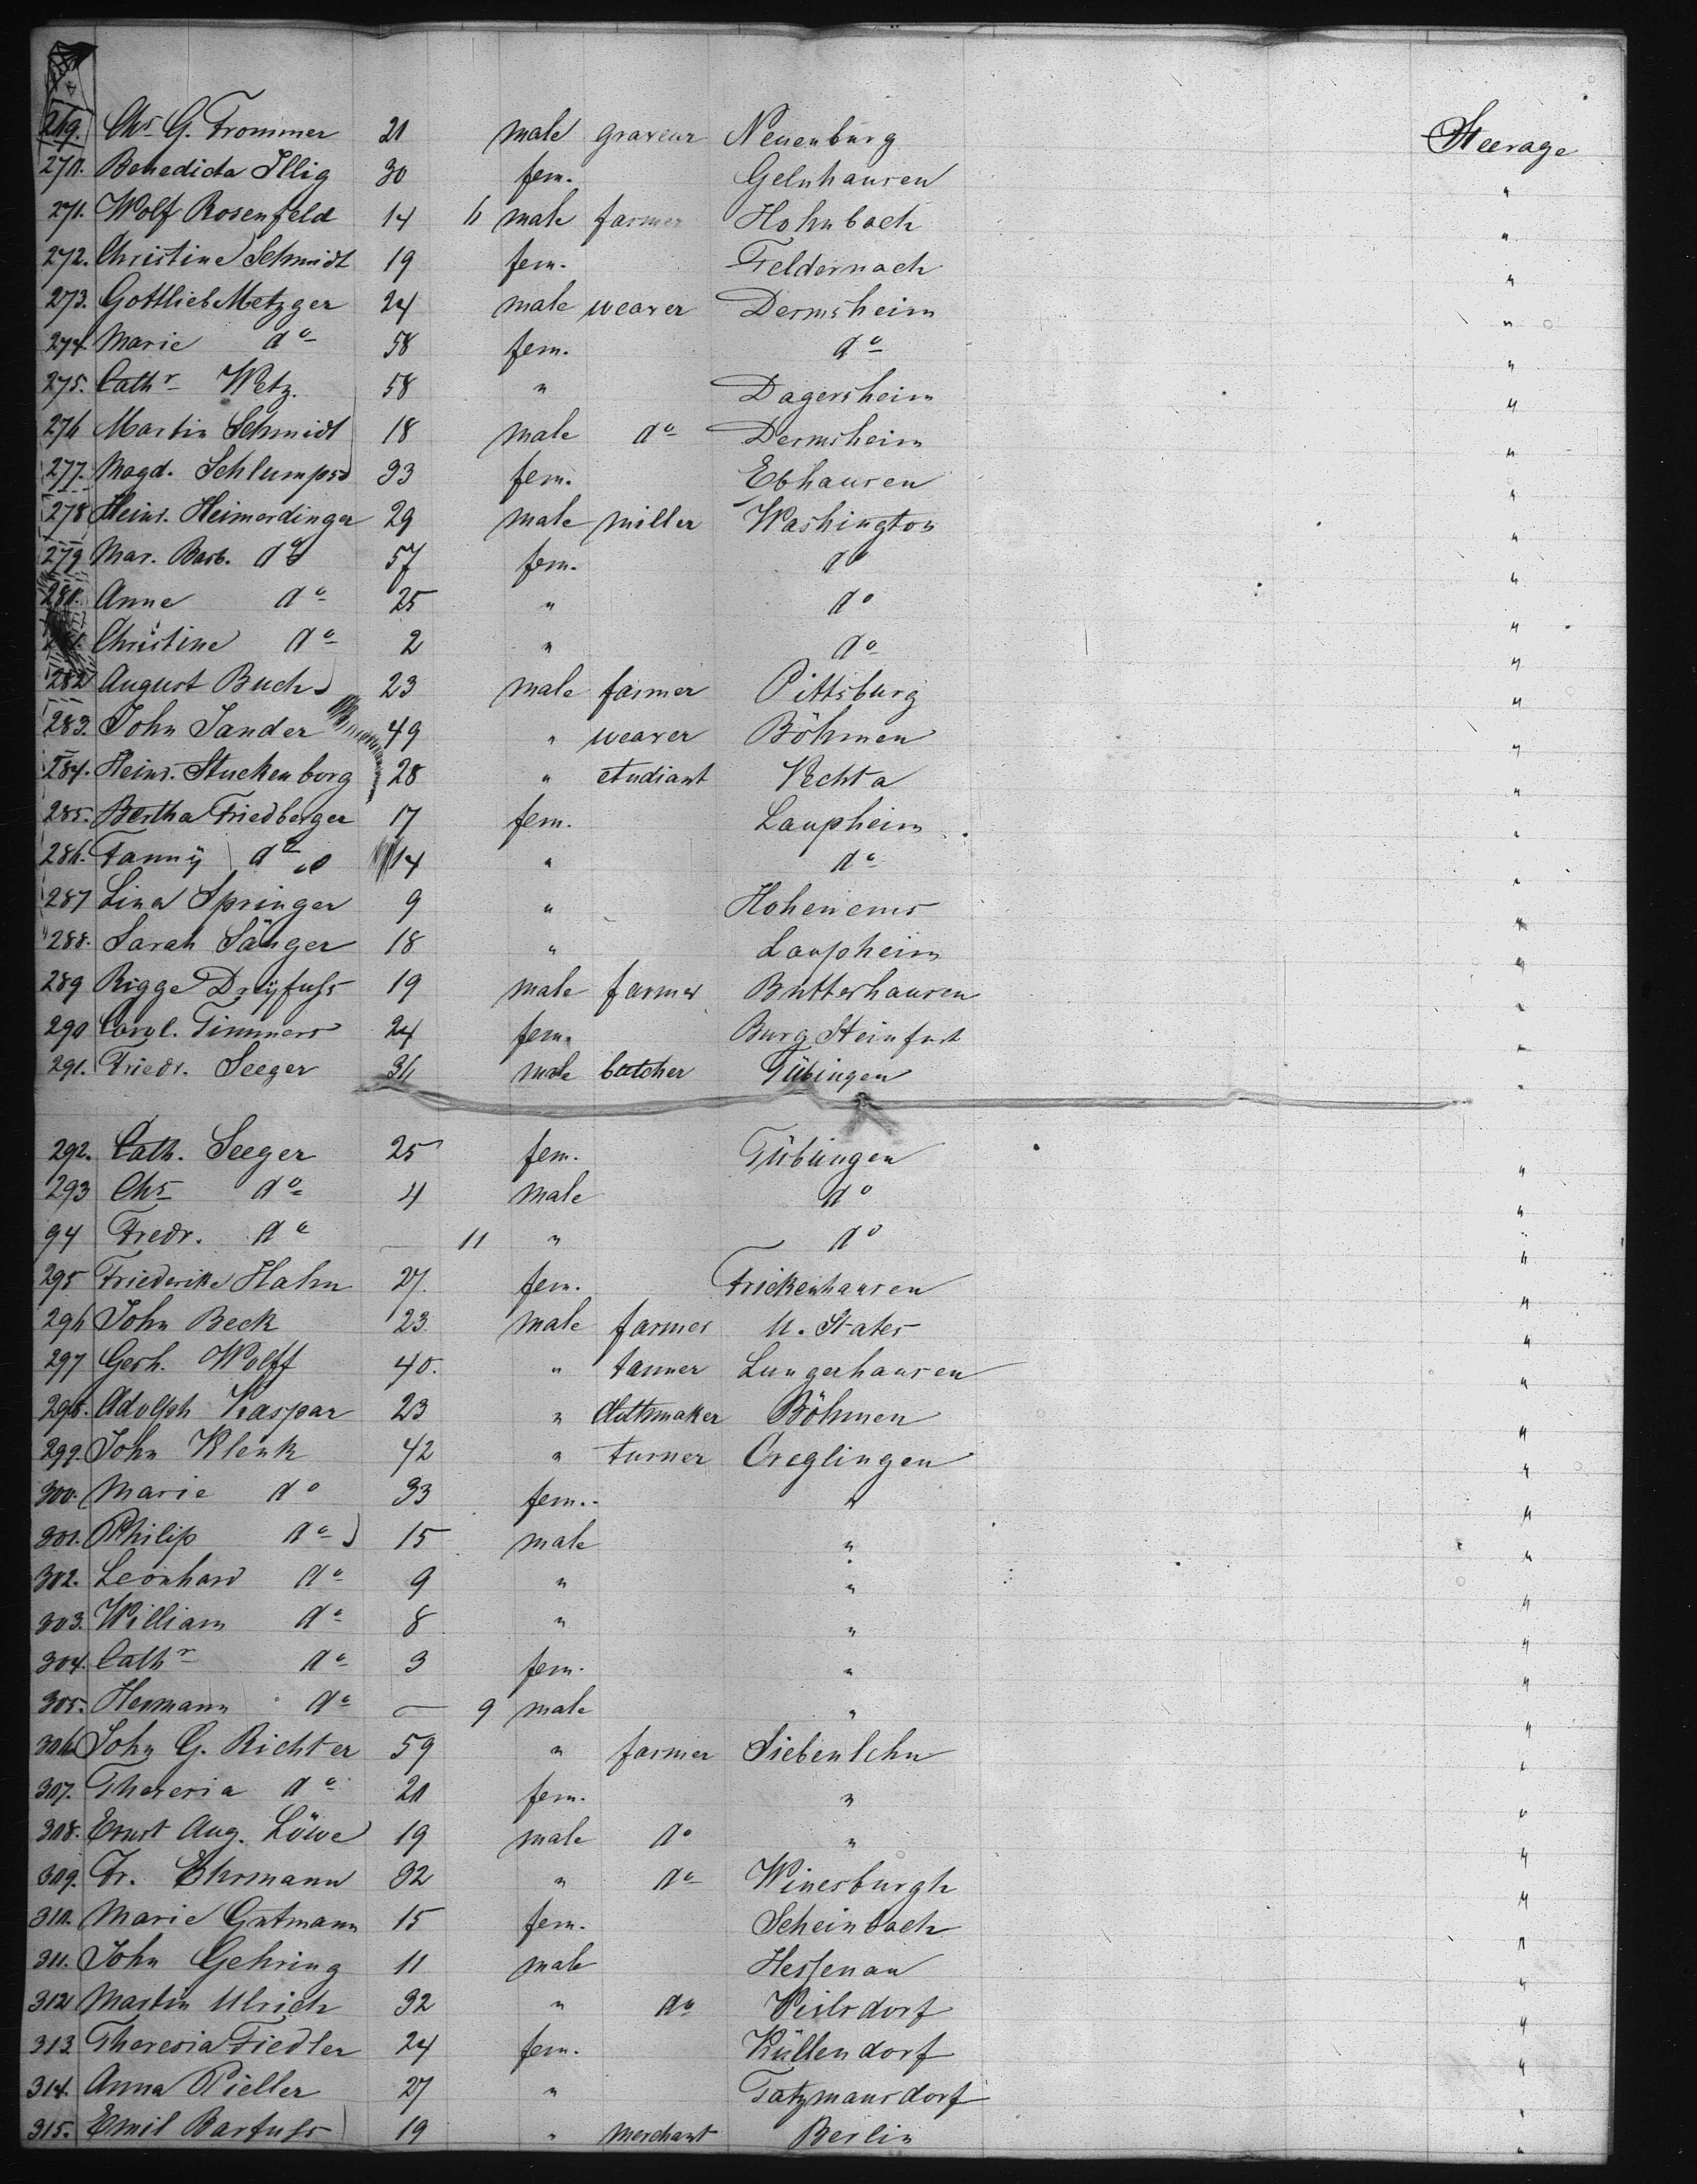 269. Chs G. Frommer 21 male graveur Neuenburg Steerage
270. Benedicta Illig 30 fem. Gelnhausen "
271. Wolf Rosenfeld 14 6 male farmer Hohnbach "
272. Christine Schmidt 19 fem. Feldernach "
273. Gottlieb Metzger 24 male weaver Dermsheim "
274. Marie do 58 fem. do "
275. Cathr Wetz. 58 " Dagersheim "
276 Martin Schmidt 18 male do Dermsheim "
277. Magd. Schlumpp 33 fem. Ebhausen "
278 Heinr. Heimerdinger 29 male miller Washington "
279 Mar. Barb. do 57 fem. do "
280. Anne do 25 " do "
281. Christine do 2 " do "
282 August Buch 23 male farmer Pittsburg "
283. John Sander 49 " weaver Böhmen "
284. Heinr. Stuckenborg 28 " etudiant Vechta "
285. Bertha Friedberger 17 fem. Laupheim "
286. Fanny do 14 " do "
287 Lina Springer 9 " Hohenems "
288. Sarah Sänger 18 " Laupheim "
289 Rigge Dreyfuss 19 male farmer Buttenhausen "
290 Carol. Timmers 24 fem. Burg Steinfurt "
291. Friedr. Seeger 36 male butcher Tübingen "
292. Cath. Seeger 25 fem. Tübingen "
293 Chs do 4 male do "
94 Fredr. do — 11 " do "
295 Friederike Hahn 27. fem. Frickenhausen "
296 John Beck 23 male farmer U. States "
297 Gerh. Wolff 40. " tanner Lungerhausen "
298. Adolph Kaspar 23 " clothmaker Böhmen "
299. John Klenk 42 " turner Creglingen "
300. Marie do 33 fem. " "
301. Philip do 15 male " "
302. Leonhard do 9 " " "
303. William do 8 " " "
304. Cathr do 3 fem. " "
305. Hermann do — 9 male " "
306 John G. Richter 59 " farmer Siebenlehn "
307. Theresia do 20 fem. " "
308. Ernst Aug. Löwe 19 male do " "
309. Fr. Ehrmann 32 " do Winesburgh "
310. Marie Gutmann 15 fem. Scheinbach "
311. John Gehring 11 male Hessenau "
312 Martin Ulrich 32 " do Veilsdorf "
313. Theresia Fiedler 24 fem. Küllendorf "
314. Anna Pieller 27 " Tatzmansdorf "
315. Emil Barfuss 19 " merchant Berlin "